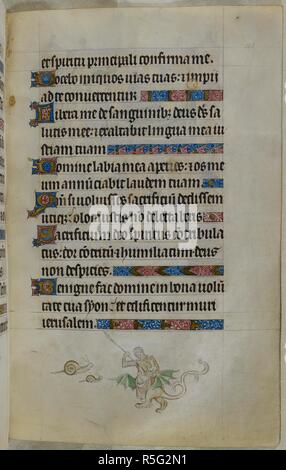 et spiritu principali confirma me.
Doceb iniquos uias tuas: et impii
ad te conuertentur.
Libera me de sanguinib; deus deus sa
lutis mee: et exaltabit lingua mea iu
sticiam tuam
Domine labia mea aperies: et os me
um annunciabit laudem tuam
si uoluisses sacrificium dedissem
utiq; holocaustis non delectaberis
Sacrificium deo spiritus contribula
tus: cor contritum et humiliatum deus
non despicies.
Benigne fac domine in bona uolun
tate tua syon: et edificentur muri
ierusalem.
alamy
R5G2N1
www.alamy.com